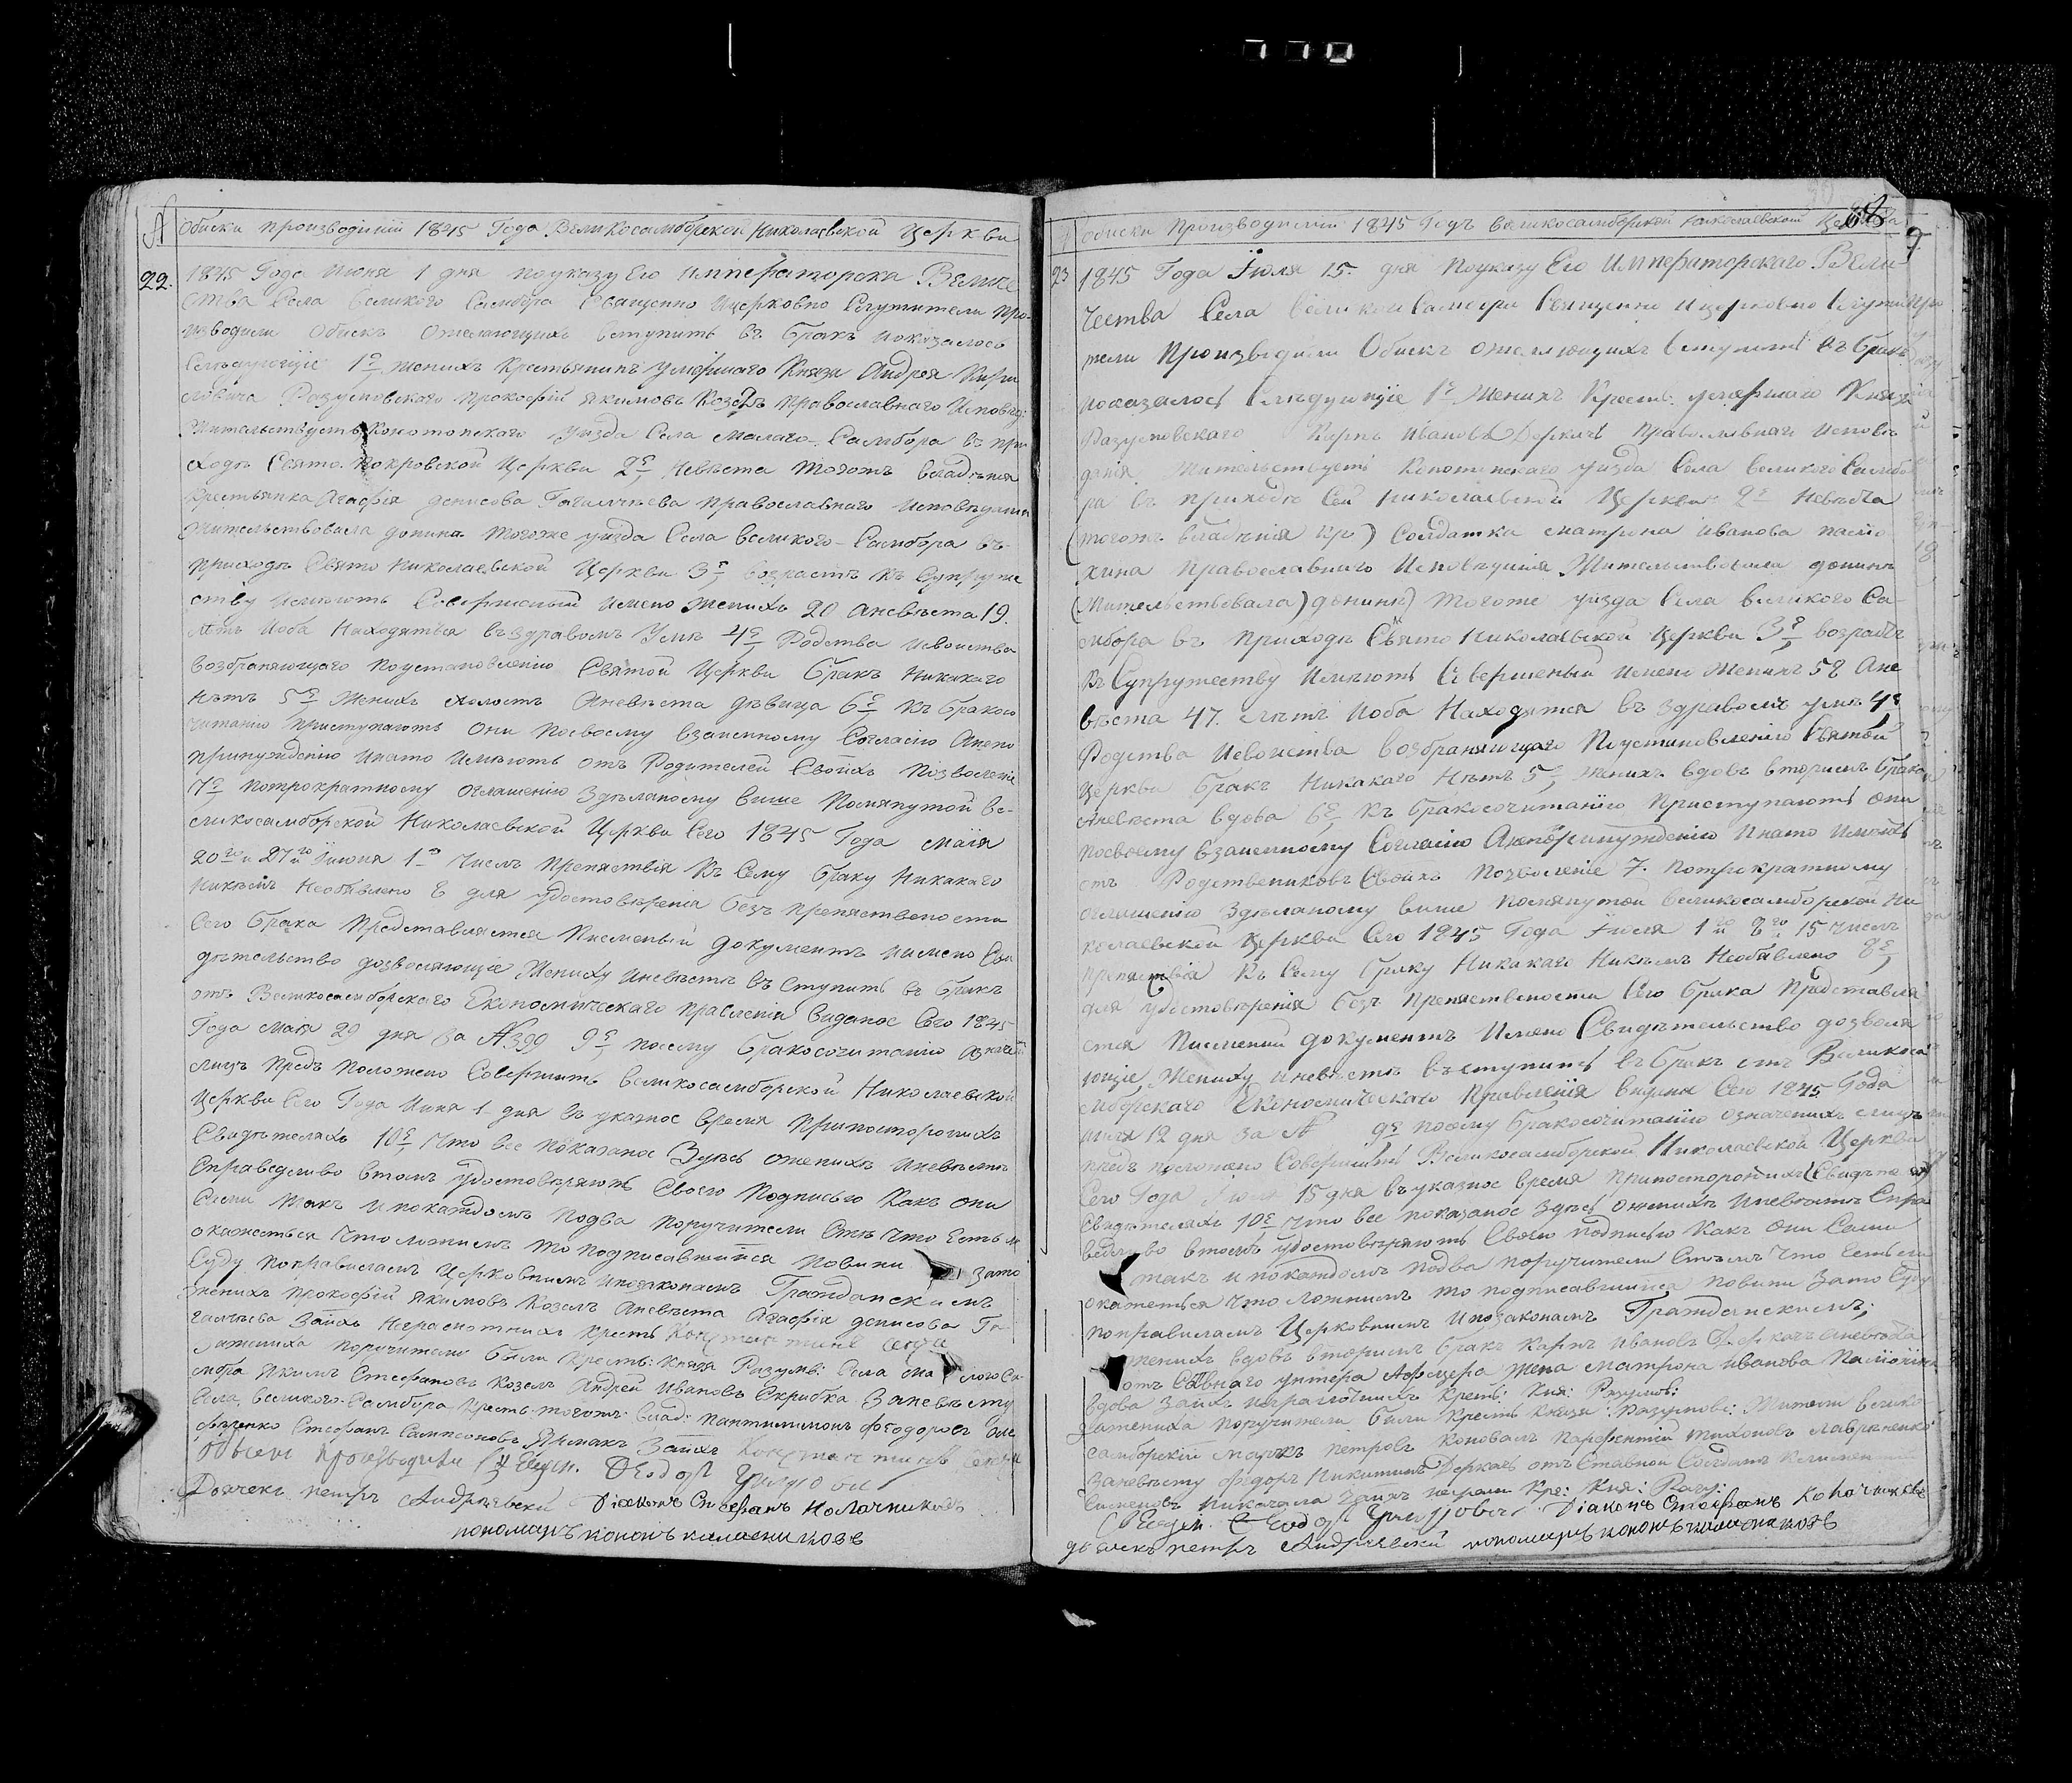 № Обиски производиміи 1845 Года Великосамборской Николаевской Церкви
22. 1845 Года Июня 1 дня поуказу Его Императорска Величе
ства Села Великого Самбора Священно Ицерковно Служители про-
изводили Обиск Ожелающихъ вступить въ бракъ показалось
Следующіе 1е женихъ Крестьянинъ умершаго Князя Андрея Кири
ловича Разумовского Прокофій Якимовъ Козелъ православнаго Исповед:
Жительствуетъ Конотопскаго уизда Села Малаго Самбора въ при
ходѣ Свято Покровской Церкви 2е, Невѣста тогожъ владѣнія
Крестьянка Агафія денисова православнаго Исповѣданія
Жительствовала донинѣ Тогоже уизда Села Великого-Самбора въ
приходѣ Свято Николаевской Церкви 3е, возрастъ къ Супруже
ству Имѣютъ Совершеный Имено Женихъ 20 аневѣста 19
лѣтъ Иоба Находятся въздравомъ Умѣ 4е, Родства Исвойства
возбраняющаго поустановленію Святой Церкви бракъ Никакаго
нѣтъ 5е, Женихъ холостъ Аневѣста дѣвица 6е, къ бракосо
читанію приступаютъ Они посвоему взаимному Согласію Анепо
принужденію Инато Имѣютъ отъ Родителей Своихъ Позволеніе
7е, потрократному оглашенію Здѣланому више Помянутой Ве-
ликосамборской Николаевской Церкви Сего 1845 Года маія
20го и 27го Июня 1го числъ препяствія къ Сему браку Никакаго
Никѣмъ Необявлено 8 для удостовѣренія безъ препяствености
Сего брака Представляется Писменый Документъ имено Сви
дѣтельство дозволяющіе Жениху Иневѣстѣ въ Ступить въ бракъ
отъ Великосамборскаго Економическаго правленія виданое Сего 1845
Года маія 29 дня за №399 9е, посему бракосочитанію означен
лицъ предъ положено Совершить Великосамборской Николаевской
Церкви Сего Года Июня 1 дня въ указное время припосторонихъ
Свидѣтеляхъ 10е, Что все показаное Здѣсь оженихѣ Иневѣстѣ
Справедливо втомъ удостовѣряютъ Своею Подписью Какъ они
Сами такъ Ипокаждомъ подва поручители Стѣ Что Естьли
окажеться Что ложнимъ то подписавшійся повини зато
Суду поправиламъ Церковнимъ Ипозаконамъ Гражданскимъ
женихъ Прокофій Якимовъ Козелъ Аневѣста Агафія денисова
Заихъ Неграмотнихъ Кресть Константинъ
Зажениха поручители были Кресть: Князя Разумов: Села малого Са
мбора Якимъ Стефановъ Козелъ Андрей Ивановъ Скрибка Заневѣсту
Села Великого-Самбора Кресть-тогожъ: влад: Пантилимонъ Феодоровъ
Стефанъ Сампсоновъ Ярмакъ Заихъ Константинъ
Обыскъ производили Ѳеодоръ
Дьячекъ петръ Андріевскій Діаконъ Стефанъ Колочниковъ
пономаръ кононъ
Обиски Производиміи 1845 Годъ Великосамборской Николаевской Церкви
23 1845 Года Июля 15 дня Поуказу Его Императорскаго Вели-
чества Села Великого Самбора Священно Ицерковно Служи
тели Производили Обиск ожелающихъ вступить въ бракъ
показалось Слѣдующіе 1е Женихъ Кресть: умершаго Князя
Разумовского Карпъ Ивановъ Деркачъ Православнаго Исповѣ
данія Жительствуетъ Конотопскаго уизда Села Великого Самбо
ра въ приходѣ Сей Николаевской Церкви 2е Невѣста
(тогожъ владѣнія кр) Солдатка матрона Иванова
православнаго Исповѣданія Жительствовала донинѣ
(Жительствовала) донинѣ) Тогоже уизда Села Великого Са
мбора въ Приходѣ Свято Николаевской Церкви 3е, возрастъ
къ Супружеству Имѣютъ Совершеный Имено Женихъ 58 Ане
вѣста 47. лѣтъ Иоба Находятся въ здравомъ умѣ 4е
Родства Исвойства возбраняющаго Поустановленію Святой
Церкви бракъ Никакаго Нѣтъ 5е, Женихъ вдовъ вторимъ бракомъ
аневѣста вдова 6е, къ бракосочитанію Приступаютъ они
посвоему взаимному Согласію Анепопринужденію Инато Имѣютъ
отъ Родствениковъ Своихъ позволеніе 7. потрократному
оглашенію Здѣланому више помянутой Великосамборской Ни
колаевской Церкви Сего 1845 Года Июля 1го 8го 15 числъ
препяствія къ Сему браку Никакаго Никѣмъ Необявлено 8е,
для удостовѣренія безъ препяствености Сего брака Представля
ется Писменій документъ Имено Свидѣтельство дозволя
ющіе Жениху Иневѣстѣ въступить въ бракъ отъ Великоса
мборскаго Економическаго Правленія видано Сего 1845 Года
12 дня за № 9е посему бракосочитанію означенихъ лицъ
предъ положено Совершить Великосамборской Николаевской Церкви
Сего Года Июля 15 дня въуказное время Припостороннихъ
Свидѣтеляхъ 10е, что все показаное здѣсь оженихѣ Иневѣстѣ Спра
ведливо втомъ удостовѣряютъ Своею подписью Какъ они Сами
такъ и покаждомъ подва поручители Стѣмъ Что Естьли
окажеться что ложнимъ то подписавшийся повини зато Суду
поправиламъ Церковнимъ Ипозаконамъ Гражданскимъ;
женихъ вдовъ вторимъ бракъ Карпъ Ивановъ Деркачъ аневѣста
отъ унтера Афицера жена Матрона Иванова
вдова Заихъ Кресть: Кня: Разумов:
Зажениха поручители были Кресть Князя: Разумов: Жители Велико
самборскій Маркъ Петровъ Коновалъ Парфентій Тихоновъ Лавриненко
Заневѣсту Федоръ Никитинъ Деркачъ отъ Ставной Солдатъ
Заихъ Кре: Кня: Разу:
Ѳеодоръ Діаконъ Стефанъ
дьячекъ петръ Андріевскій пономаръ кононъ